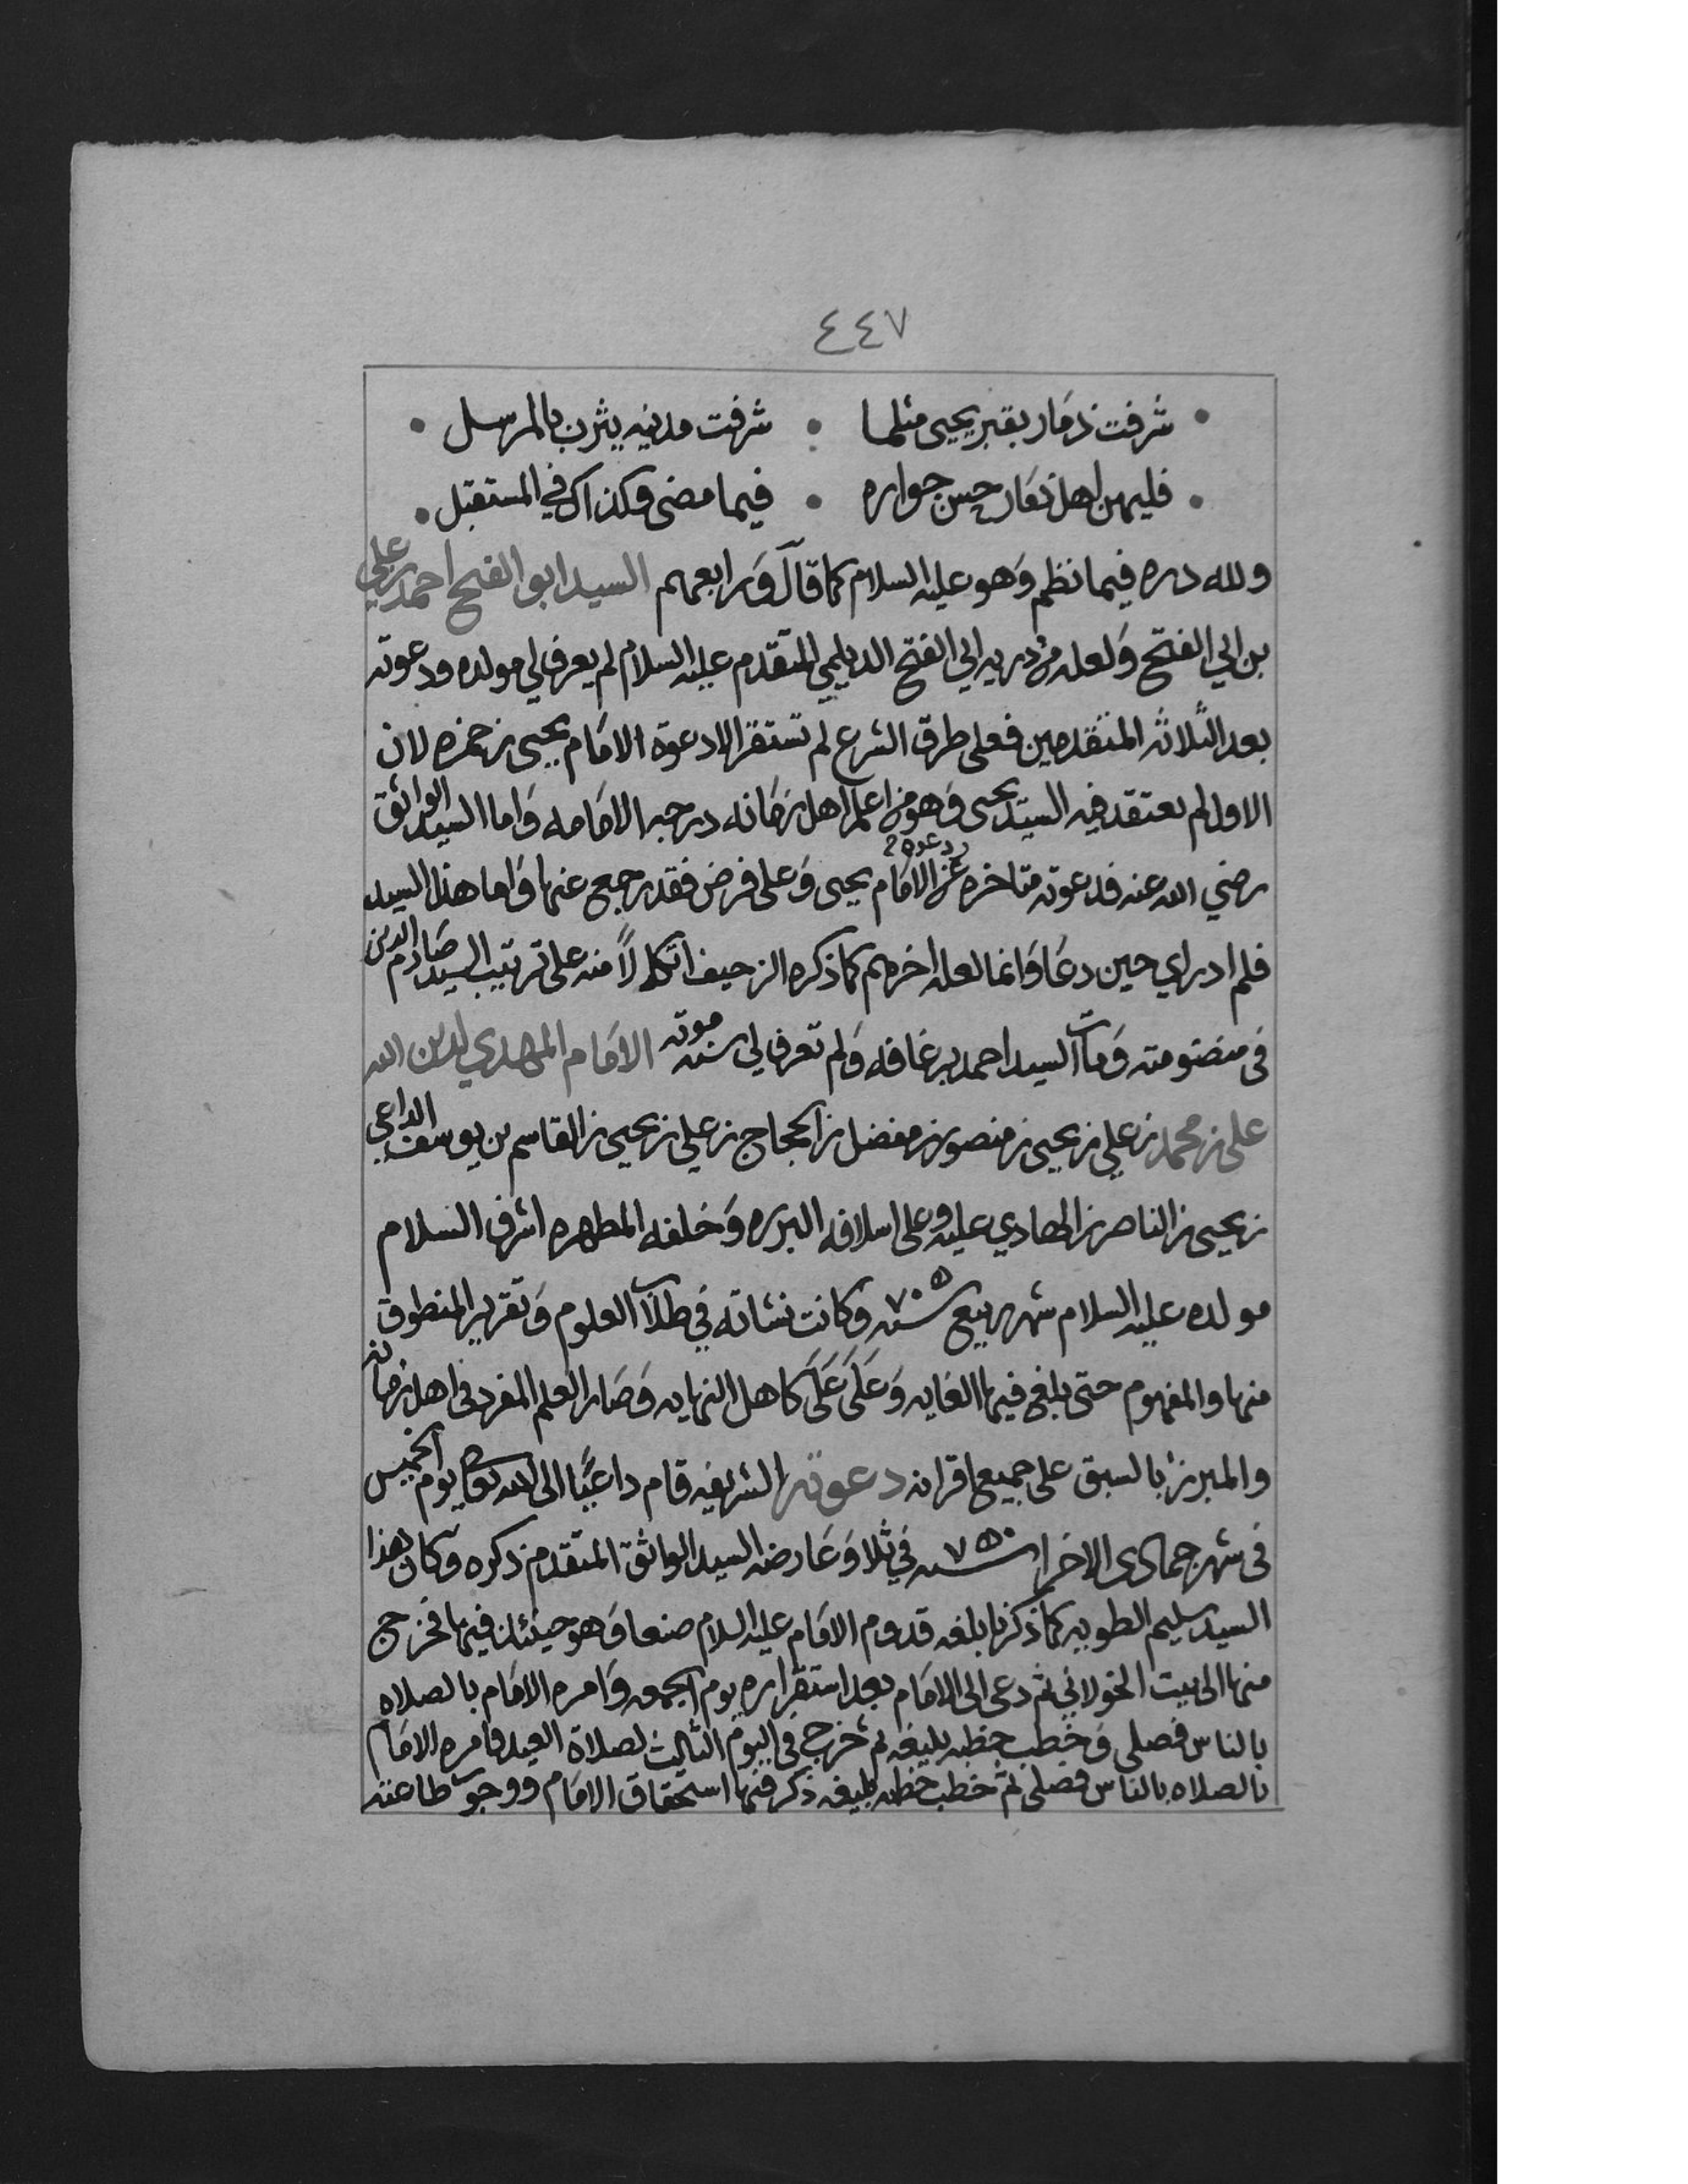 ٤٤٧
شرفت ذمار بقبر يحيى مثلما • شرفت مدينه يثرب بالمرسل •
فليهن اهل ذمار حسن جواره • فيما مضى وكذاك في المستقبل •
ولله دره فيما نظم وهو عليه السلام كما قال ورابعهم السيد ابو الفتح احمد بن علي
بن ابي الفتح ولعله من ذريه ابي الفتح الديلمي المتقدم عليه السلام لم يعرف لي مولده ودعوته
بعد الثلاثه المتقدمين فعلى طرق الشرع لم تستقر الا دعوة الامام يحيى بن حمزه لان
الاول لم يعتقد فيه السيد يحيى وهو من اعلم اهل زمانه درجه الامامه واما السيد الواثق
رضي الله عنه فدعوته متاخره عن دعوة الامام يحيى وعلى فرض فقد رجع عنها واما هذا السيد
فلم ادر اي حين دعا وانما لعله اخرهم كما ذكره الزحيف اتكالاً منه على ترتيب السيد صارم الدين
في منضومته ومات السيد احمد برغافه ولم تعرف لي سنه موته الامام المهدي لدين الله
علي بن محمد بن علي بن يحيى بن منصور بن مفضل بن الحجاج بن علي بن يحيى بن القاسم بن يوسف الداعي
بن يحيى بن الناصر بن الهادي عليه وعلى اسلافه البرره وخلفه المطهره اشرف السلام
مولده عليه السلام شهر ربيع سنه ٧٠٥ وكانت نشاته في طلاب العلوم وتقرير المنطوق
منها والمفهوم حتى بلغ فيها الغايه وعلى على كاهل النهايه وصار العلم المفرد في اهل زمانه
والمبرز بالسبق على جميع اقرانه دعوته الشريفه قام داعيًا الى الله تعالى يوم الخميس
في شهر جمادى الاخرا سنه ٧٥٠ في ثلا وعارضه السيد الواثق المتقدم ذكره وكان هذا
السيد سليم الطويه كما ذكرنا بلغه قدوم الامام عليه السلام صنعا وهو حينئذ فيها فخرج
منها الى بيت الخولاني ثم دعى الى الامام بعد استقراره يوم الجمعه وامره الامام بالصلاه
بالناس فصلى وخطب خطبه بليغه ثم خرج في اليوم الثالث لصلاة العيد فامره الامام
بالصلاه بالناس فصلى ثم خطب خطبه بليغه ذكر فيها استحقاق الامام ووجوب طاعته